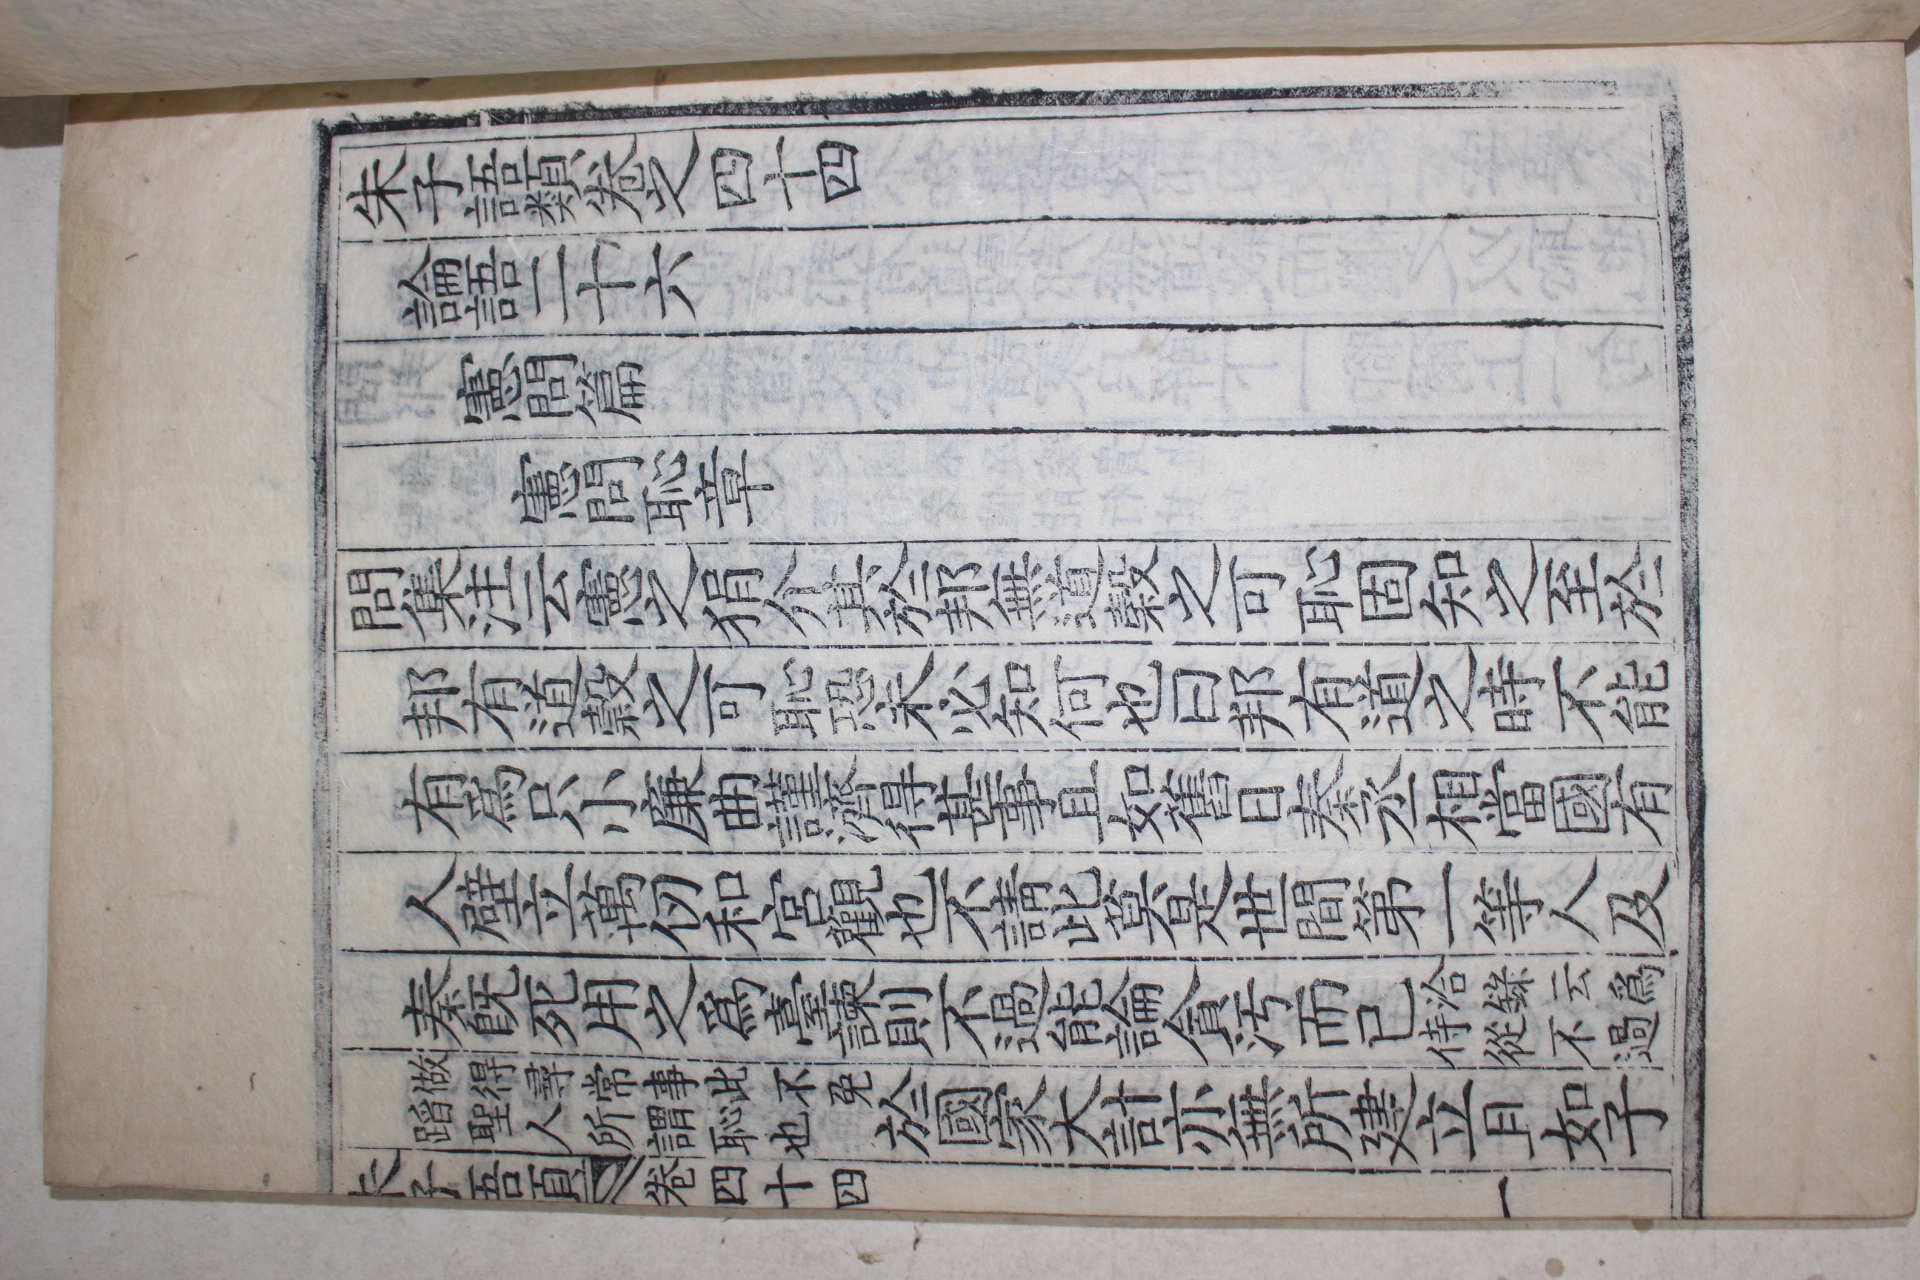 朱子語類卷之四十四
論語二十六
憲問篇
憲問恥章
問集注云憲之狷介其於邦無道穀之可恥固知之至於
邦有道穀之可恥恐未必知何也曰邦有道之時不能
有爲只小廉曲謹濟得甚事且如舊日秦丞相當國有
人壁立萬仞和宮觀也不請此莫是世間第一等人及
秦旣死用之爲臺諫則不過能論貪汚而已洽錄云爲侍從不過
做得尋常事此不免蹈聖人所謂恥也於國家大計亦無所建立且如子
朱子語類 卷四十四 一